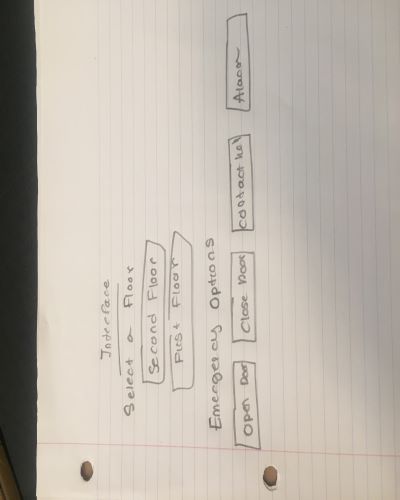 Interface
Select a Floor
Second Floor
First Floor
Emergency Options
Open Door Close Door Contact hel Alarm